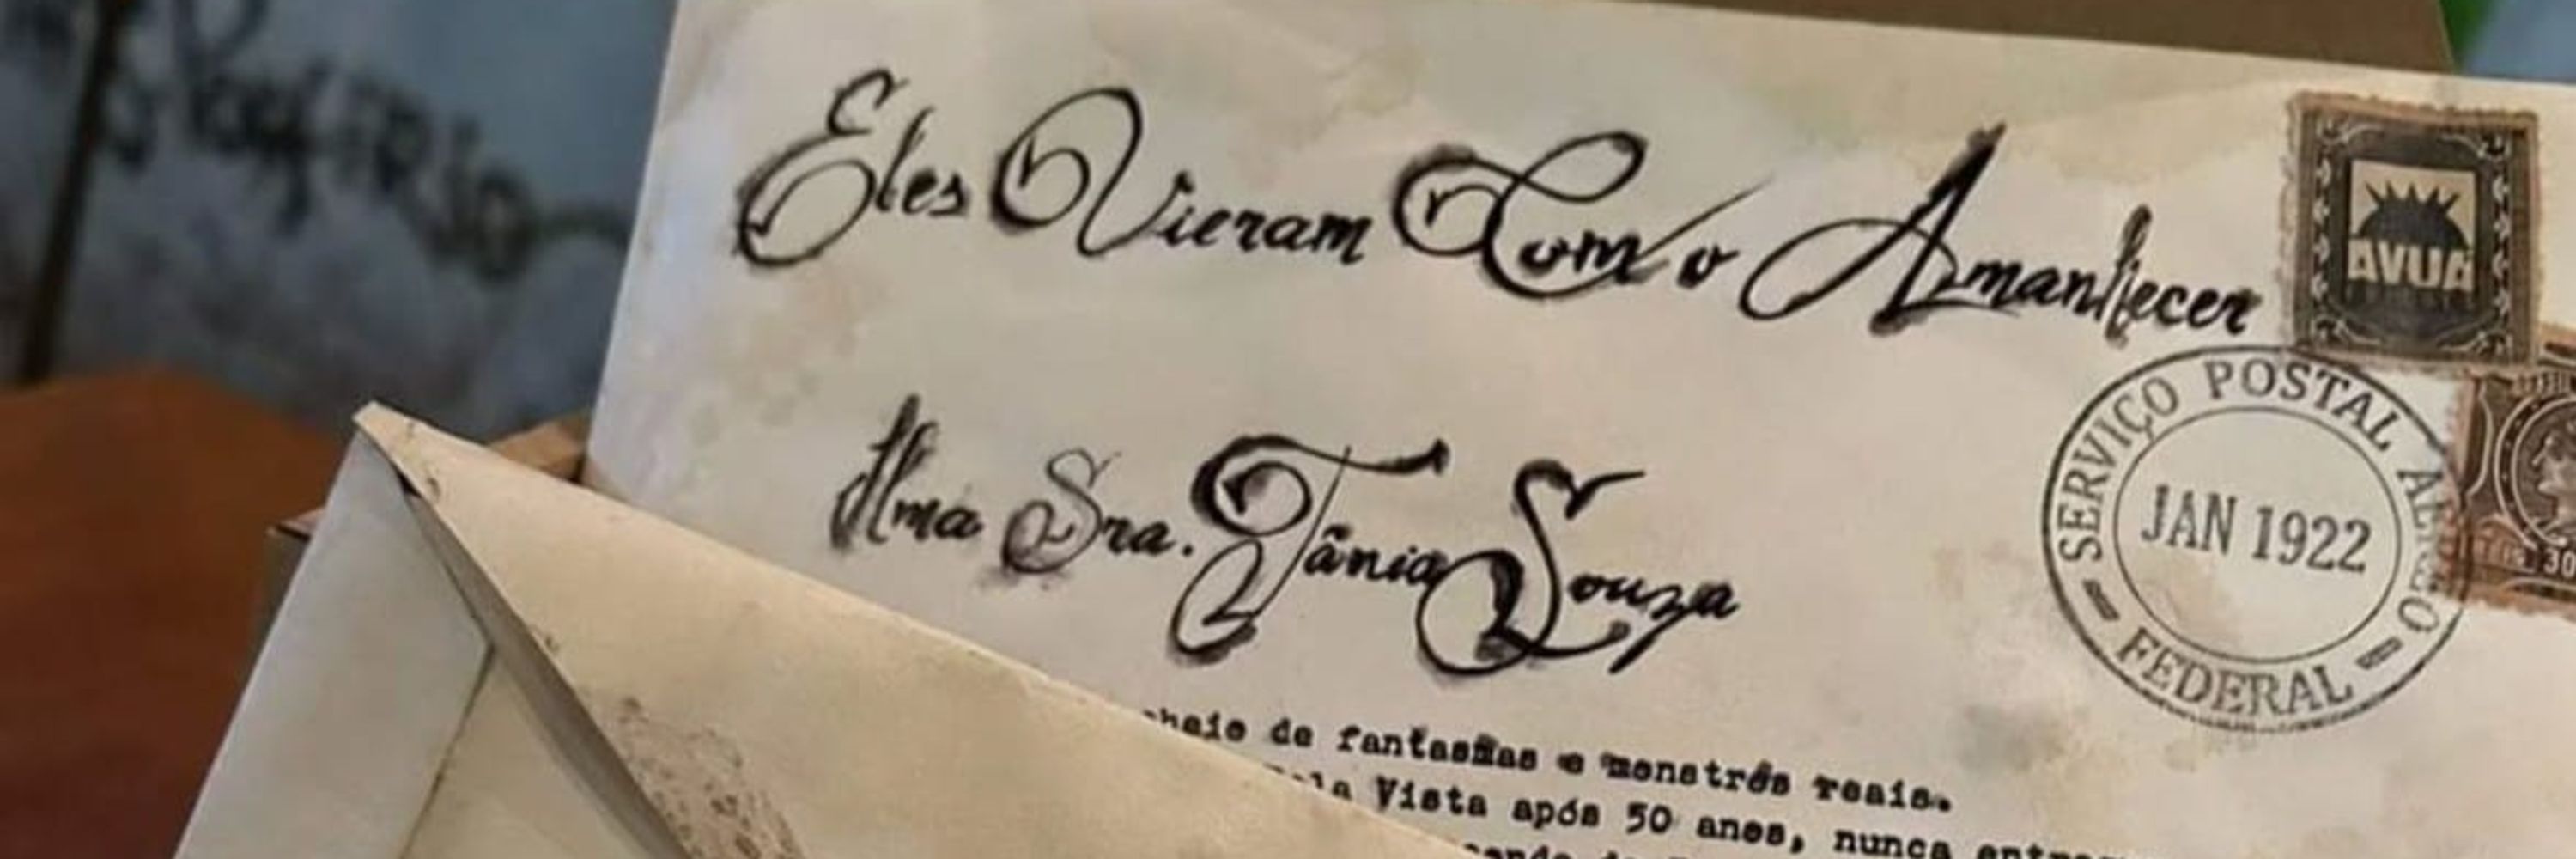 Eles Vieram Com o Amanhecer
AVUA
SERVIÇO POSTAL AÉREO
JAN 1922
FEDERAL
30
Ilma Sra. Tânia Souza
de fantasmas e monstros reais.
Vista após 50 anos, nunca